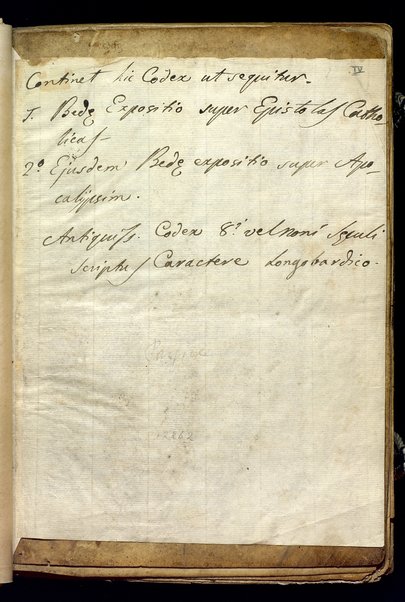 IV
Continet hic Codex ut sequitur.
1. Bedę Expositio super Epistolas Catho
licas
2.o Ejusdem Bedę expositio super Apo
calijpsim.
Antiquiss. Codex 8.i vel noni Sęculi
scriptus Caractere Longobardico.